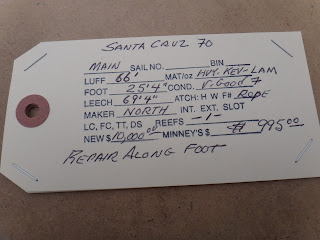 SANTA CRUZ 70
MAIN SAIL NO. BIN
LUFF 66' MAT/oz HVY. KEV-LAM
FOOT 25'4" COND. V. Good 7
LEECH 69'4" ATCH: H W F# ROPE
MAKER NORTH INT. EXT. SLOT
LC, FC, TT, DS REEFS -1-
NEW $ 10,000.00 MINNEY'S $ 995.00
REPAIR ALONG FOOT